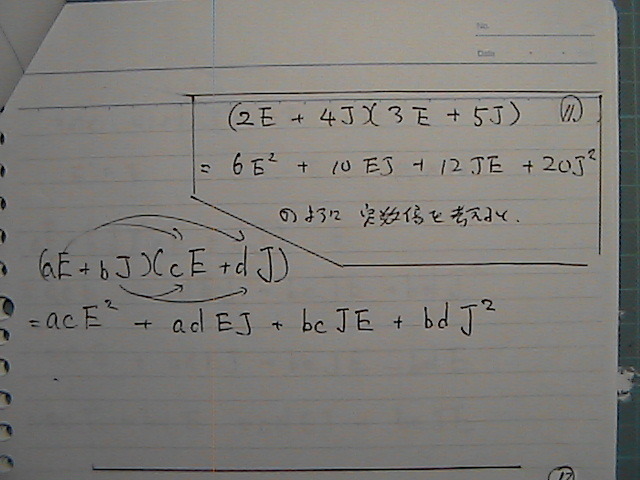 No.
Date
(2E + 4J)(3E + 5J) ⑪
= 6E² + 10EJ + 12JE + 20J²
のように 実数倍を考えて、
(aE + bJ)(cE + dJ)
= acE² + adEJ + bcJE + bdJ²